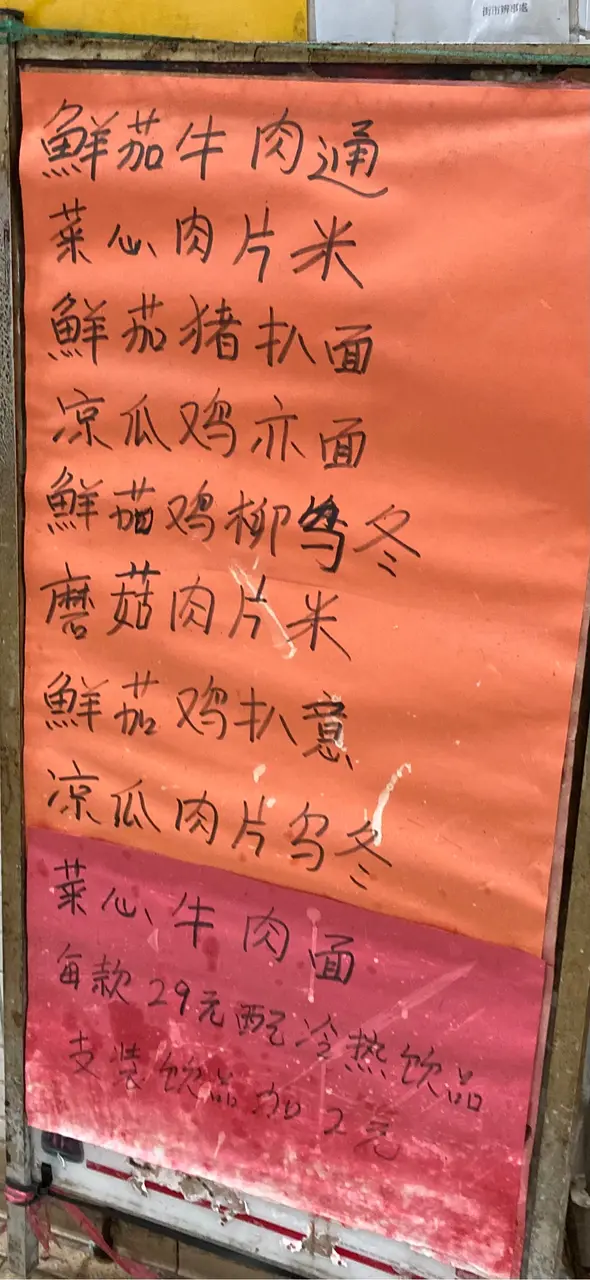 街市辦事處
鮮茄牛肉通
菜心肉片米
鮮茄猪扒面
凉瓜鸡亦面
鮮茄鸡柳乌冬
磨菇肉片米
鮮茄鸡扒意
凉瓜肉片乌冬
菜心牛肉面
每款29元配冷热饮品
支装饮品加2元